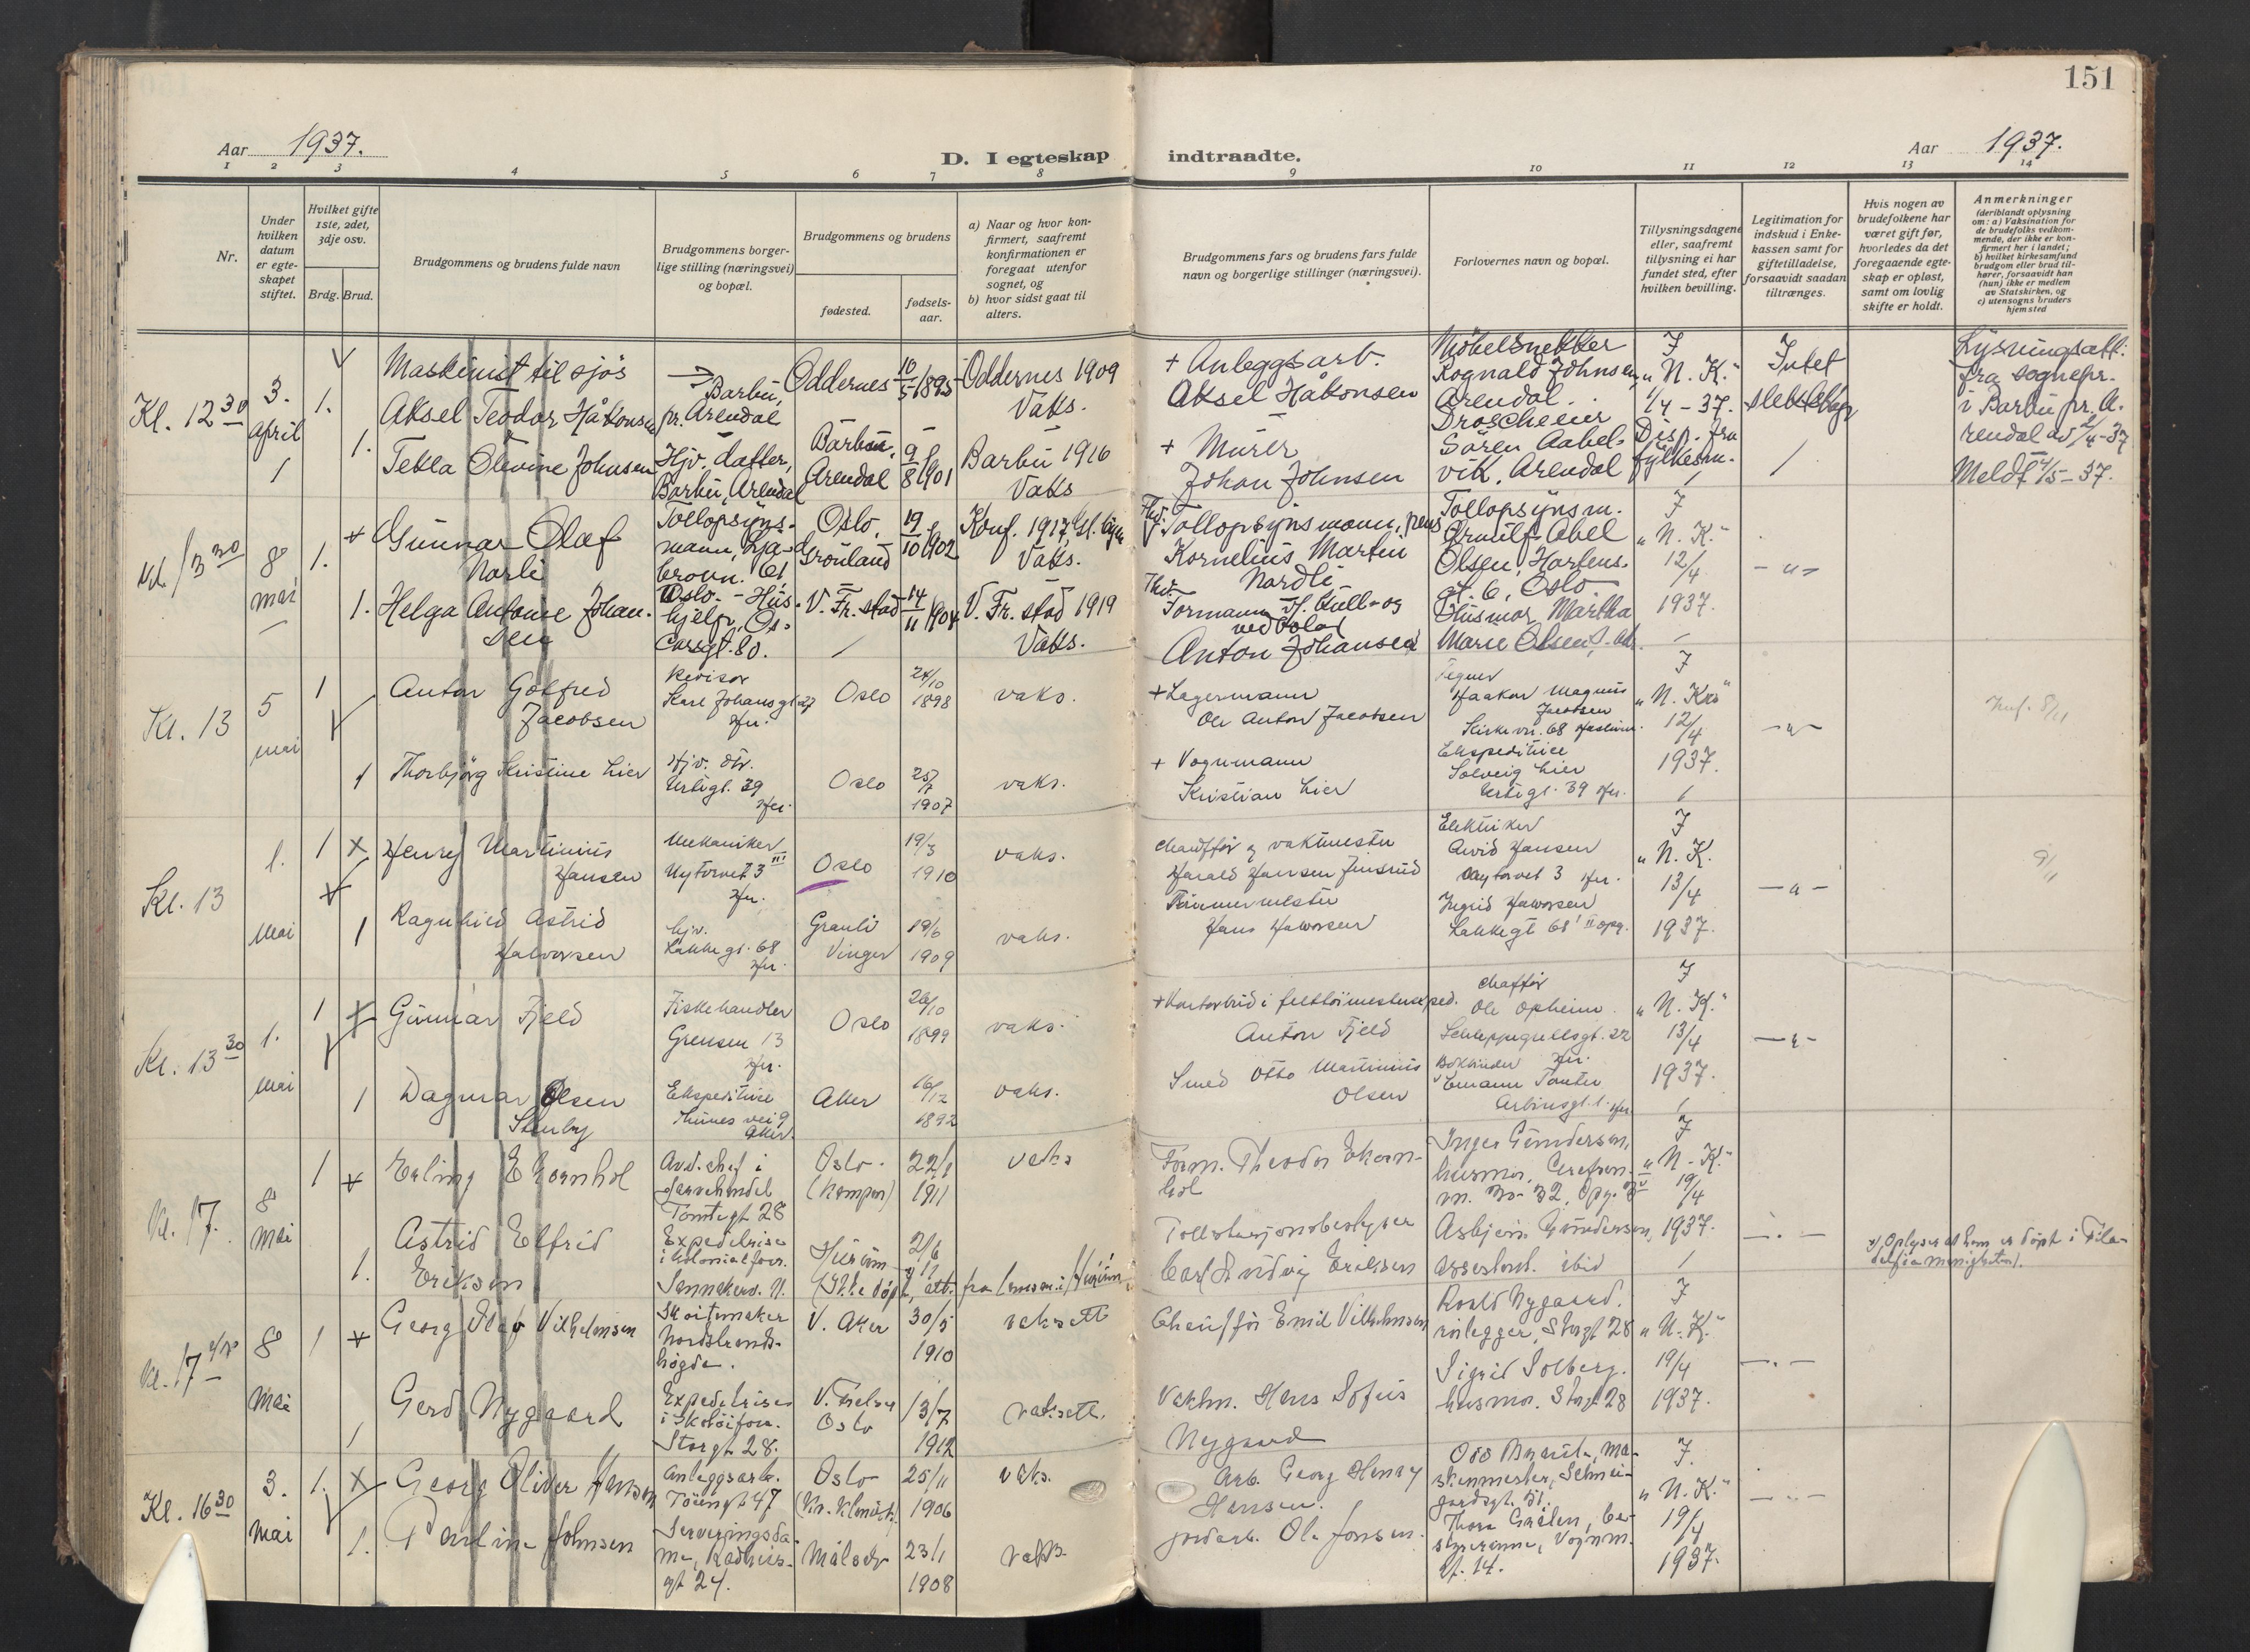 151
Aar 1937.
D. I egteskap indtraadte.
Aar 1937.
1 2 3 4 5 6 7 8 9 10 11 12 13 14
Nr.
Under hvilken datum er egte-skapet stiftet.
Hvilket gifte 1ste, 2det, 3dje osv.
Brdg. Brud.
Brudgommens og brudens fulde navn
Brudgommens borger-lige stilling (næringsvei) og bopæl.
Brudgommens og brudens
fødested.
fødsels-aar.
a) Naar og hvor kon-firmert, saafremt konfirmationen er foregaat utenfor sognet, og
b) hvor sidst gaat til alters.
Brudgommens fars og brudens fars fulde navn og borgerlige stillinger (næringsvei).
Forlovernes navn og bopæl.
Tillysningsdagene eller, saafremt tillysning ei har fundet sted, efter hvilken bevilling.
Legitimation for indskud i Enke-kassen samt for giftetilladelse, forsaavidt saadan tiltrænges.
Hvis nogen av brudefolkene har været gift før, hvorledes da det foregaaende egte-skap er opløst, samt om lovlig skifte er holdt.
Anmerkninger
(deriblandt oplysning om: a) Vaksination for de brudefolks vedkom-mende, der ikke er kon-firmert her i landet;
b) hvilket kirkesamfund brudgom eller brud til-hører, forsaavidt han (hun) ikke er medlem av Statskirken, og
c) utensogns bruders hjemsted
Kl. 12 30
3. april
1.
Maskinist til sjös
Aksel Teodor Håkonsen
Barbu, pr. Arendal
Oddernes
10/5 1895
Oddernes 1909
Vaks.
+ Anleggsarb.
Aksel Håkonsen
Möbelsnekker
Rognald Johnsen,
Arendal.
I
"N. K."
1/4-37.
Intet
Lysningsatt.
fra sognepr.
i Barbu pr. A-
rendal av 2/4-37
1.
Tekla Olevine Johnsen
Hjv. datter,
Barbu, Arendal
Barbu, Arendal
9/8 1901
Barbu 1916
Vaks
+ Murer
Johan Johnsen
Droscheeier
Sören Aabel-
vik, Arendal
Disp. fra
fylkesm.
Meldt 4/5-37.
Kl. 13 30
8 mai
1.
Gunnar Olaf
Narli
Tollopsyns-
mann, Lja-
brovn. 61,
Oslo.
Oslo, Grönland
19/10 1902
Konf. 1917
Vaks.
Tollopsynsmann, pens
Kornelius Martin
Nordli
Tollopsynsm.
Arnulf Abel
Olsen, Hartens-
gt. 6, Oslo
I
"N. K."
12/4
1937.
1.
Helga Antonie Johan-
sen
Hus-
hjelp, Os-
carsgt. 80.
V. Fr.stad
14/11 1904
V. Fr.stad 1919
Vaks.
Formann v/ Kull- og
ved
Anton Johansen
Husmor Martha
Marie Olsen,
Kl. 13
5 mai
1
Anton Gotfred
Jacobsen
Revisor
Karl Johansgt 27
Her.
Oslo
24/10
1898
vaks.
+ Lagermann
Ole Anton Jacobsen
Tegner
Haakon Magnus
Jacobsen
Kirkevn. 68
I
12/4
1937.
1
Thorbjörg Kristine Lier
Hjv. dtr.
Urtegt. 39
Her.
Oslo
25/7
1907
vaks.
+ Vognmann
Kristian Lier
Ekspeditrice
Solveig Lier
Urtegt. 39 Her.
Kl. 13
1. mai
1
Henry Martinius
Hansen
Mekaniker
Nytorvet 3 III
Her.
Oslo
19/3
1910
vaks.
Chauffør og vaktmester
Harald Hansen
Elektriker
Arvid Hansen
Nytorvet 3 Her.
I
"N. K.
13/4
1937.
1
Ragnhild Astrid
Halvorsen
hjv.
Lakkegt. 68
Her.
Granli
Vinger
19/6
1909
vaks.
Hans Halvorsen
Ingrid Halvorsen
Lakkegt 68 II opg.
Kl. 13 30
1. mai
1
Gunnar Fjeld
Fiskehandler
Grensen 13
Her.
Oslo
26/10
1899
vaks.
Anton Fjeld
chaffør
Ole Opheim
Schleppegrellsgt. 22
Her.
I
"N. K."
13/4
1937.
1
Dagmar Olsen
Stenby
Ekspeditrice
Thunes vei 9
Aker.
Aker
16/12
1892
vaks.
Smed Otto Martinius
Olsen
Bokbinder
Arbinsgt. 1. Her
Kl. 17.
8 mai
1
Erling Ekornhol
Avd. chef i
farvehandel
Tomtegt 28
Oslo
(Kampen)
22/1
1911
vaks
Form. Theodor Ekorn-
hol
Inger Gundersen,
husmor, Grefsen-
vn.
I
"N. K."
19/4
1937.
1.
Astrid Elfrid
Eriksen
Expeditrise
i kolonialforr.
Sannerkv.
Hurum
2/6
11
(Ikke döpt, att. fra lensm. i Hurum
Tollstasjonsbestyrer
Carl Ludvig Eriksen
Asbjörn Gundersen,
assistent. ibid
x) Oplyser at ham er döpt i Fila-
delfia menigheten).
Kl. 17 45
8 mai
1
Georg Olav Vilhelmsen
Skoitmaker
Nordstrands-
högda.
V. Aker
30/5
1910
vaks att
Chauffør Emil Vilhelmsen
Roald Nygaard.
rörlegger, Storgt 28
I
"N. K."
19/4
1937.
1
Gerd Nygaard
Expeditrise
i skotöiforr.
Storgt 28.
V. Frelser
Oslo
13/7
1912
vaks att.
Vaktm. Hans Sofus
Nygaard
Sigrid Solberg.
husmor. Storgt 28
Kl. 16 30
3. mai
1.
Georg Oliver Hansen
Anleggsarb.
Töiengt 47
Oslo
25/11
1906
vaks.
Arb. Georg Henry
Hansen.
ma-
skinmester, Schwei-
gaardsgt. 51.
I.
"N. K."
19/4
1937.
1.
Pauline Johnsen
Serveringsda-
me, Rådhus-
gt 24.
Målselv
23/1
1908
vaks.
jordarb. Ole Jonsen.
be-
styrerinne, Vognm.
gt. 14.